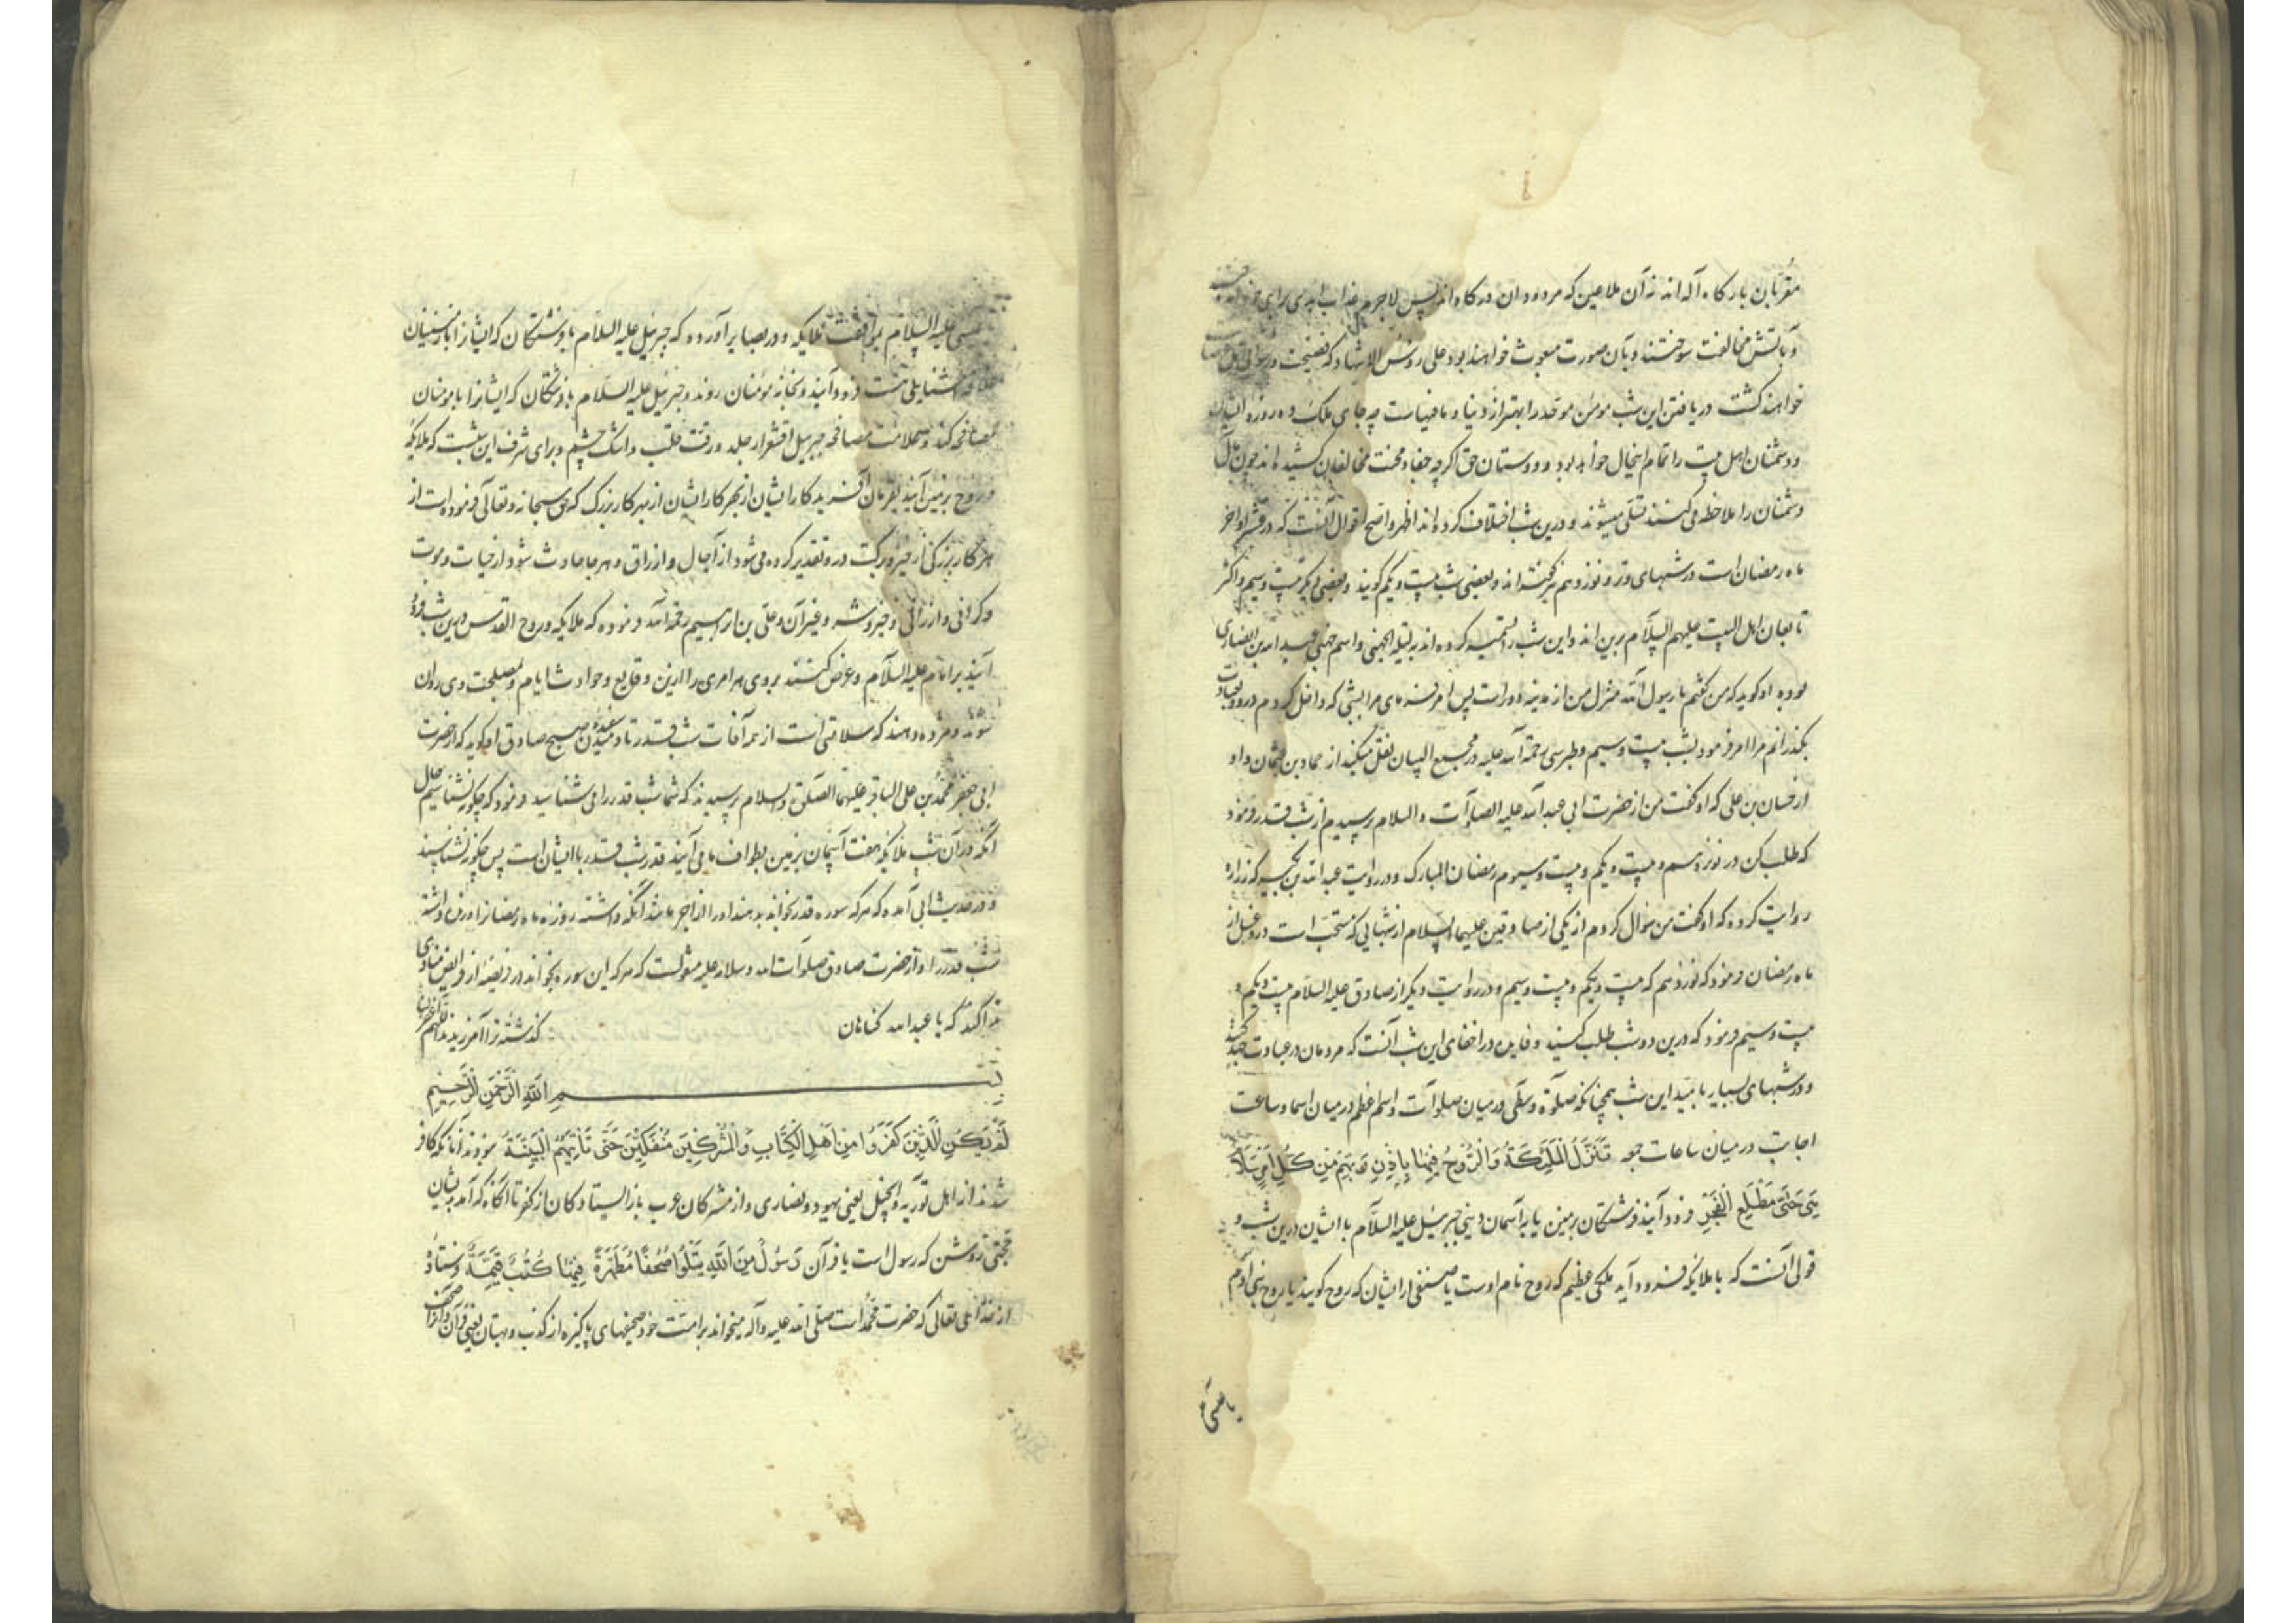 مقربان بارگاه آله اند نه آن ملاعین که مردودان درگاه اند پس لاجرم عذاب ابدی برای خود
و بآتش مخالفت سوختند و بآن صورت مبعوث خواهند بود علی روس الاشهاد که فضیحت و رسوای
خواهند کشت دریافتن این شب مومن موحد را بهتر از دنیا و مافیهاست چه جای ملک ده روزه ایشان
و دشمنان اهل بیت را تمام این حال خواهد بود و دوستان حق اگرچه جفا و محنت مخالفان کشیده اند چون مآل
دشمنان را ملاحظه می کنند تسلی میشوند و درین شب اختلاف کرده اند اظهر و اصح اقوال آنست که در عشر اواخر
ماه رمضان است در شبهای وتر و نوزدهم نیز گفته اند و بعضی شب بیست و یکم گویند و بعضی دیگر بیست و سیم و اکثر
تابعان اهل البیت علیهم السلام برین اند و این شب را تسمیه کرده اند بلیلة الجهنی و اسم جهنی عبد الله بن انصاری
بوده او گوید که من گفتم یا رسول الله منزل من از مدینه دور است پس امر فرمای مرا بشبی که داخل گردم درو و بعبادت
بگذرانم مرا امر فرمود بشب بیست و سیم و طبرسی رحمة الله علیه در مجمع البیان نقل میکند از حماد بن عثمان و او
از حسان بن علی که او گفت من از حضرت ابی عبد الله علیه الصلوات و السلام پرسیدم از شب قدر فرمود
که طلب کن در نوزدهم و بیست و یکم و بیست و سیوم رمضان المبارک و در روایت عبد الله بن بکیر که زراره
روایت کرده که او گفت من سؤال کردم از یکی از صادقین علیهما السلام از شبهایی که مستحب است درو غسل از
ماه رمضان فرمود که نوزدهم که بیست و یکم و بیست و سیم و در روایت دیگر از صادق علیه السلام بیست و یکم و
بیست و سیم فرمود که درین دو شب طلب کنید و فایده در اخفای این شب آنست که مردمان در عبادت جهد کنند
و در شبهای بسیار یابند این شب همچنانکه صلوة وسطی در میان صلوات و اسم اعظم در میان اسما و ساعت
اجابت در میان ساعات جمعه تَنَزَّلُ الْمَلٰئِكَةُ وَالرُّوحُ فِيهَا بِإِذْنِ رَبِّهِمْ مِنْ كُلِّ أَمْرٍ سَلَامٌ
هِيَ حَتَّىٰ مَطْلَعِ الْفَجْرِ فرود آیند فرشتگان بزمین یا به آسمان دنیی جبرئیل علیه السلام با ایشان درین شب و
قولی آنست که با ملائکه فرود آید ملکی عظیم که روح نام اوست یا صنفی از ایشان که روح گویند یا روح بنی آدم
یا عیسی
عیسی علیه السلام بموافقت ملایکه و در بصایر آورده که جبرئیل علیه السلام با فرشتگان که ایشانرا با زمینیان
علاقه آشنایی هست فرود آیند و بخانه مؤمنان روند و جبرئیل علیه السلام با فرشتگان که ایشانرا با مومنان
مصافحه کند و علامت مصافحه جبرییل اقشعرار جلد و رقت قلب و اشک چشم و برای شرف این شبست که ملایکه
و روح بزمین آیند بفرمان آفریدگار ایشان از بهر کار ایشان از بهر کار بزرگ که حق سبحانه و تعالی فرموده است از
هر کار بزرگی از خیر و برکت درو تقدیر کرده می شود از آجال و ارزاق و هر چه حادث شود از حیات و موت
و گرانی و ارزانی و خیر و شر و غیر آن و علی بن ابراهیم رحمه الله فرموده که ملایکه و روح القدس درین شب فرود
آیند بر امام علیه السلام و عرض کنند بروی هر امری را ازین وقایع و حوادث ایام و بمصلحت وی روان
شوند و مژده دهند که سلامتی است از همه آفات شب قدر تا دمیدن سفیده صبح صادق او گوید که از حضرت
ابی جعفر محمد بن علی الباقر علیهما الصلوة و السلام پرسیدند که شما شب قدر را می شناسید فرمود که چگونه نشناسیم حال
آنکه در آن شب ملائکه هفت آسمان بزمین بطواف ما می آیند قدر شب قدر با ایشان است پس چگونه نشناسند
و در حدیث ابی آمده که هر که سوره قدر بخواند بدهند او را از اجر مانند آنکه داشته روزه ماه رمضانرا و زنده داشته
شب قدر را و از حضرت صادق صلوات الله و سلامه علیه منقولست که هر که این سوره بخواند در فریضه از فرایض منادی
ندا کند که یا عبد الله گناهان گذشته ترا آمرزیدند
بسم الله الرحمن الرحیم
لَمْ يَكُنِ الَّذِينَ كَفَرُوا مِنْ أَهْلِ الْكِتَابِ وَالْمُشْرِكِينَ مُنْفَكِّينَ حَتَّىٰ تَأْتِيَهُمُ الْبَيِّنَةُ نبودند آنانکه کافر
شدند از اهل توریه و انجیل یعنی یهود و نصاری و از مشرکان عرب باز ایستادگان از کفر تا آنگاه که آمد بدیشان
حجتی روشن که رسول است یا قرآن رَسُولٌ مِنَ اللَّهِ يَتْلُوا صُحُفًا مُطَهَّرَةً فِيهَا كُتُبٌ قَيِّمَةٌ فرستاده
از خدای تعالی که حضرت محمد است صلی الله علیه و آله میخواند بر امت خود صحیفهای پاکیزه از کذب و بهتان یعنی قرآن و آنرا صحف